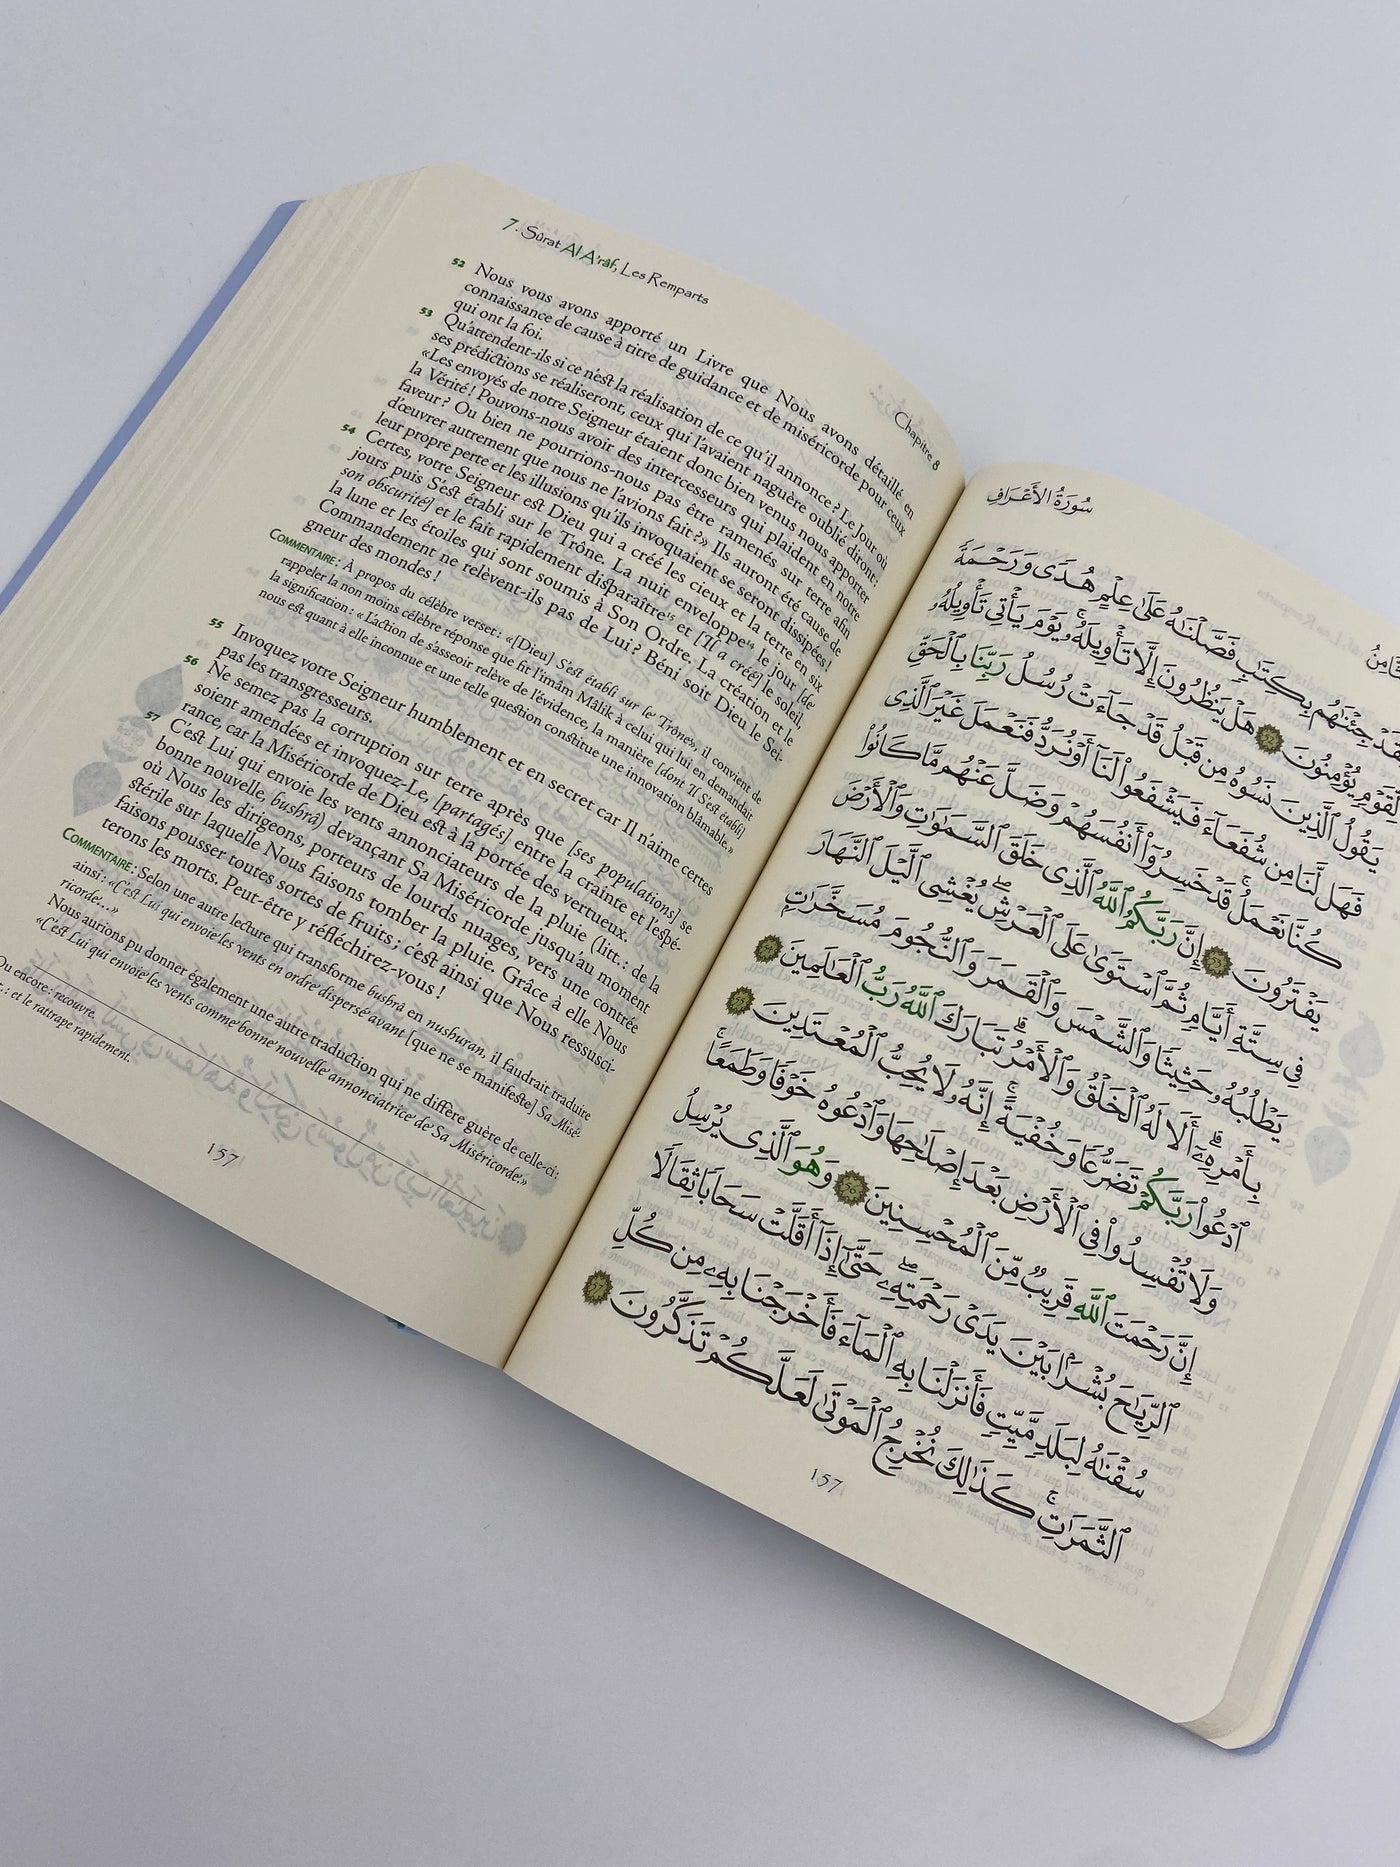 7. Sûrat Al A'râf, Les Remparts
Chapitre 8
52 Nous vous avons apporté un Livre que Nous avons détaillé en
connaissance de cause à titre de guidance et de miséricorde pour ceux
qui ont la foi.
53 Qu'attendent-ils si ce n'est la réalisation de ce qu'il annonce? Le Jour où
ses prédictions se réaliseront, ceux qui l'avaient naguère oublié diront:
«Les envoyés de notre Seigneur étaient donc bien venus nous apporter
la Vérité! Pouvons-nous avoir des intercesseurs qui plaident en notre
faveur? Ou bien ne pourrions-nous pas être ramenés sur terre afin
d'œuvrer autrement que nous ne l'avions fait?» Ils auront été cause de
leur propre perte et les illusions qu'ils invoquaient se seront dissipées!
54 Certes, votre Seigneur est Dieu qui a créé les cieux et la terre en six
jours puis S'est établi sur le Trône. La nuit enveloppe¹⁴ le jour [de
son obscurité] et le fait rapidement disparaître¹⁵ et [Il a créé] le soleil,
la lune et les étoiles qui sont soumis à Son Ordre. La création et le
Commandement ne relèvent-ils pas de Lui? Béni soit Dieu le Sei-
gneur des mondes!
COMMENTAIRE: À propos du célèbre verset: «[Dieu] S'est établi sur le Trône», il convient de
rappeler la non moins célèbre réponse que fit l'imâm Mâlik à celui qui lui en demandait
la signification: «L'action de s'asseoir relève de l'évidence, la manière [dont Il S'est établi]
nous est quant à elle inconnue et une telle question constitue une innovation blâmable.»
55 Invoquez votre Seigneur humblement et en secret car Il n'aime certes
pas les transgresseurs.
56 Ne semez pas la corruption sur terre après que [ses populations] se
soient amendées et invoquez-Le, [partagés] entre la crainte et l'espé-
rance, car la Miséricorde de Dieu est à la portée des vertueux.
57 C'est Lui qui envoie les vents annonciateurs de la pluie (litt.: de la
bonne nouvelle, bushrâ) devançant Sa Miséricorde jusqu'au moment
où Nous les dirigeons, porteurs de lourds nuages, vers une contrée
stérile sur laquelle Nous faisons tomber la pluie. Grâce à elle Nous
faisons pousser toutes sortes de fruits; c'est ainsi que Nous ressusci-
terons les morts. Peut-être y réfléchirez-vous!
COMMENTAIRE: Selon une autre lecture qui transforme bushrâ en nushuran, il faudrait traduire
ainsi: «C'est Lui qui envoie les vents en ordre dispersé avant [que ne se manifeste] Sa Misé-
ricorde...»
Nous aurions pu donner également une autre traduction qui ne diffère guère de celle-ci:
«C'est Lui qui envoie les vents comme bonne nouvelle annonciatrice de Sa Miséricorde.»
Ou encore: recouvre.
: et le rattrape rapidement.
157
سُورَةُ الأَعْرَافِ
جِئْنَٰهُم بِكِتَٰبٍ فَصَّلْنَٰهُ عَلَىٰ عِلْمٍ هُدًى وَرَحْمَةً
لِّقَوْمٍ يُؤْمِنُونَ 52 هَلْ يَنظُرُونَ إِلَّا تَأْوِيلَهُۥ ۚ يَوْمَ يَأْتِي تَأْوِيلُهُۥ
يَقُولُ ٱلَّذِينَ نَسُوهُ مِن قَبْلُ قَدْ جَآءَتْ رُسُلُ رَبِّنَا بِٱلْحَقِّ
فَهَل لَّنَا مِن شُفَعَآءَ فَيَشْفَعُوا۟ لَنَآ أَوْ نُرَدُّ فَنَعْمَلَ غَيْرَ ٱلَّذِي
كُنَّا نَعْمَلُ ۚ قَدْ خَسِرُوٓا۟ أَنفُسَهُمْ وَضَلَّ عَنْهُم مَّا كَانُوا۟
يَفْتَرُونَ 53 إِنَّ رَبَّكُمُ ٱللَّهُ ٱلَّذِي خَلَقَ ٱلسَّمَٰوَٰتِ وَٱلْأَرْضَ
فِي سِتَّةِ أَيَّامٍ ثُمَّ ٱسْتَوَىٰ عَلَى ٱلْعَرْشِ ۖ يُغْشِي ٱلَّيْلَ ٱلنَّهَارَ
يَطْلُبُهُۥ حَثِيثًا وَٱلشَّمْسَ وَٱلْقَمَرَ وَٱلنُّجُومَ مُسَخَّرَٰتٍ
بِأَمْرِهِۦٓ ۗ أَلَا لَهُ ٱلْخَلْقُ وَٱلْأَمْرُ ۗ تَبَارَكَ ٱللَّهُ رَبُّ ٱلْعَٰلَمِينَ 54
ٱدْعُوا۟ رَبَّكُمْ تَضَرُّعًا وَخُفْيَةً ۚ إِنَّهُۥ لَا يُحِبُّ ٱلْمُعْتَدِينَ 55
وَلَا تُفْسِدُوا۟ فِي ٱلْأَرْضِ بَعْدَ إِصْلَٰحِهَا وَٱدْعُوهُ خَوْفًا وَطَمَعًا ۚ
إِنَّ رَحْمَتَ ٱللَّهِ قَرِيبٌ مِّنَ ٱلْمُحْسِنِينَ 56 وَهُوَ ٱلَّذِي يُرْسِلُ
ٱلرِّيَٰحَ بُشْرًۢا بَيْنَ يَدَيْ رَحْمَتِهِۦ ۖ حَتَّىٰٓ إِذَآ أَقَلَّتْ سَحَابًا ثِقَالًا
سُقْنَٰهُ لِبَلَدٍ مَّيِّتٍ فَأَنزَلْنَا بِهِ ٱلْمَآءَ فَأَخْرَجْنَا بِهِۦ مِن كُلِّ
ٱلثَّمَرَٰتِ ۚ كَذَٰلِكَ نُخْرِجُ ٱلْمَوْتَىٰ لَعَلَّكُمْ تَذَكَّرُونَ 57
157